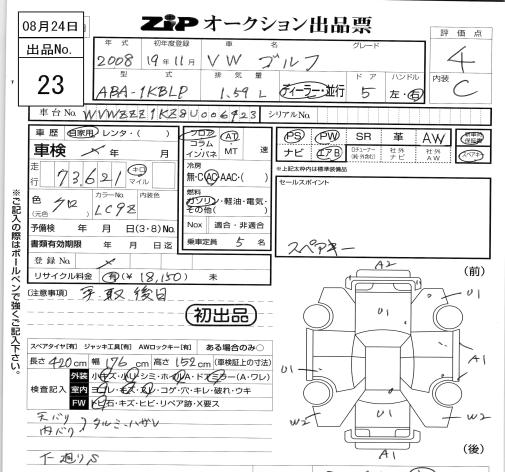 08月24日
ZIP オークション出品票
出品No.
23
年式
初年度登録
車名
グレード
評価点
2008
19年11月
VW ゴルフ
4
型式
排気量
ドア
ハンドル
内装
ABA-1KBLP
1.59 L
ディーラー・並行
5
左・右
C
車台No.
シリアルNo.
車歴
自家用・レンタ・( )
フロア
コラム
インパネ
AT
・MT
速
PS
PW
SR
革
AW
ナビ
エアB
社外ナビ
社外AW
スペアキー
車検
年 月
走行
73,621
キロ
マイル
冷房
無・C・AC・AAC・( )
*上記太枠内は標準装備品
色
(元色)
クロ
カラーNo.
LC9Z
内装色
燃料
ガソリン・軽油・電気・
その他( )
セールスポイント
スペアキー
予備検 年 月 日(3・8)No.
Nox
適合・非適合
書類有効期限 年 月 日迄
乗車定員
5 名
登録No.
リサイクル料金
有(¥ 18,150 ) 未
[注意事項]
手取後日
初出品
※ご記入の際はボールペンで強くご記入下さい。
スペアタイヤ[有] ジャッキ工具[有] AWロックキー[有] ある場合のみ○
長さ 420 cm 幅 176 cm 高さ 152 cm (車検証上の寸法)
検査記入
外装
室内
FW
天バリ
内バリ
タルミ・ハガレ
下廻りS
(前)
A2
U1
U1
A1
U1
W2
U1
W2
A1
(後)